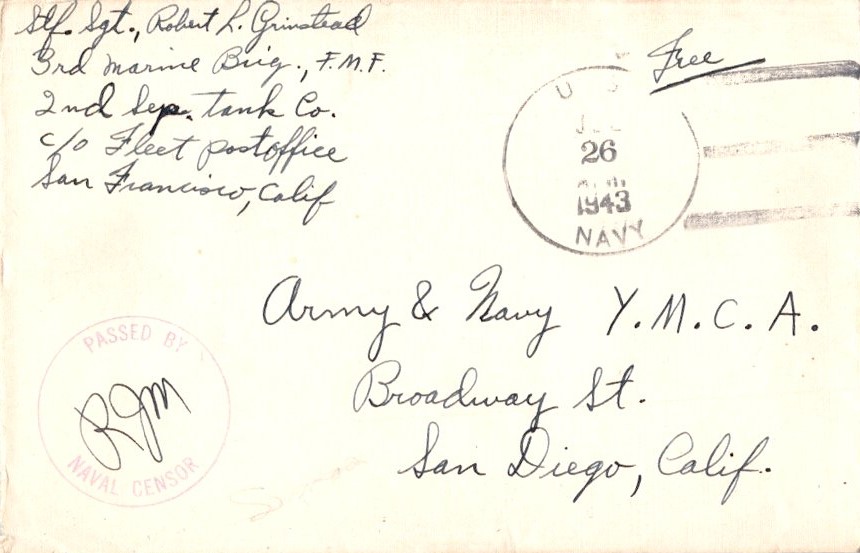 Stf. Sgt., Robert L. Grinstead
3rd Marine Brig., F.M.F.
2nd Sep. tank Co.
c/o Fleet postoffice
San Francisco, Calif
Free
U S
26
1943
NAVY
Army & Navy Y.M.C.A.
Broadway St.
San Diego, Calif.
PASSED BY
RJM
NAVAL CENSOR